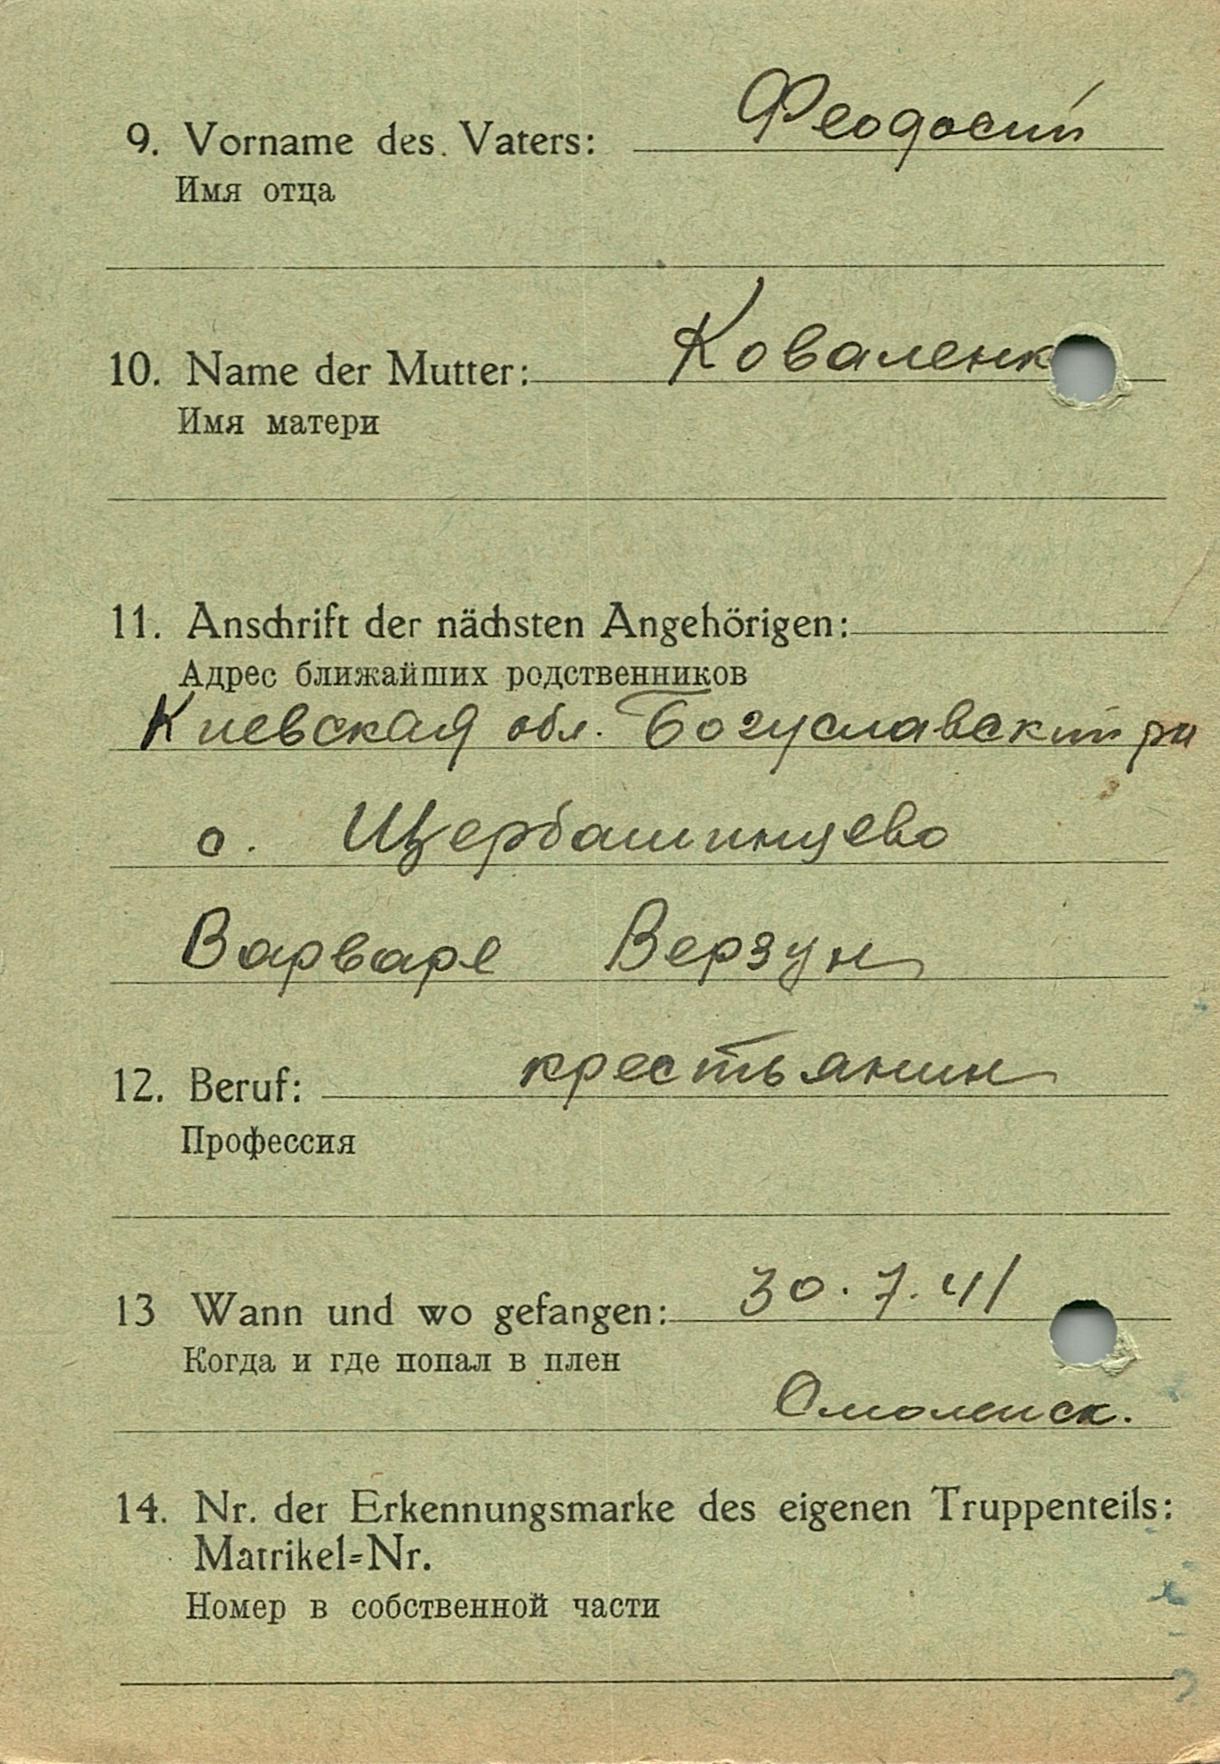 9. Vorname des Vaters: Феодосий
Имя отца
10. Name der Mutter: Коваленк
Имя матери
11. Anschrift der nächsten Angehörigen:
Адрес ближайших родственников
Киевская обл. Богуславский рн
с. Щербашинцево
Варваре Верзун
12. Beruf: крестьянин
Профессия
13 Wann und wo gefangen: 30.7.41
Когда и где попал в плен
Смоленск.
14. Nr. der Erkennungsmarke des eigenen Truppenteils:
Matrikel=Nr.
Номер в собственной части